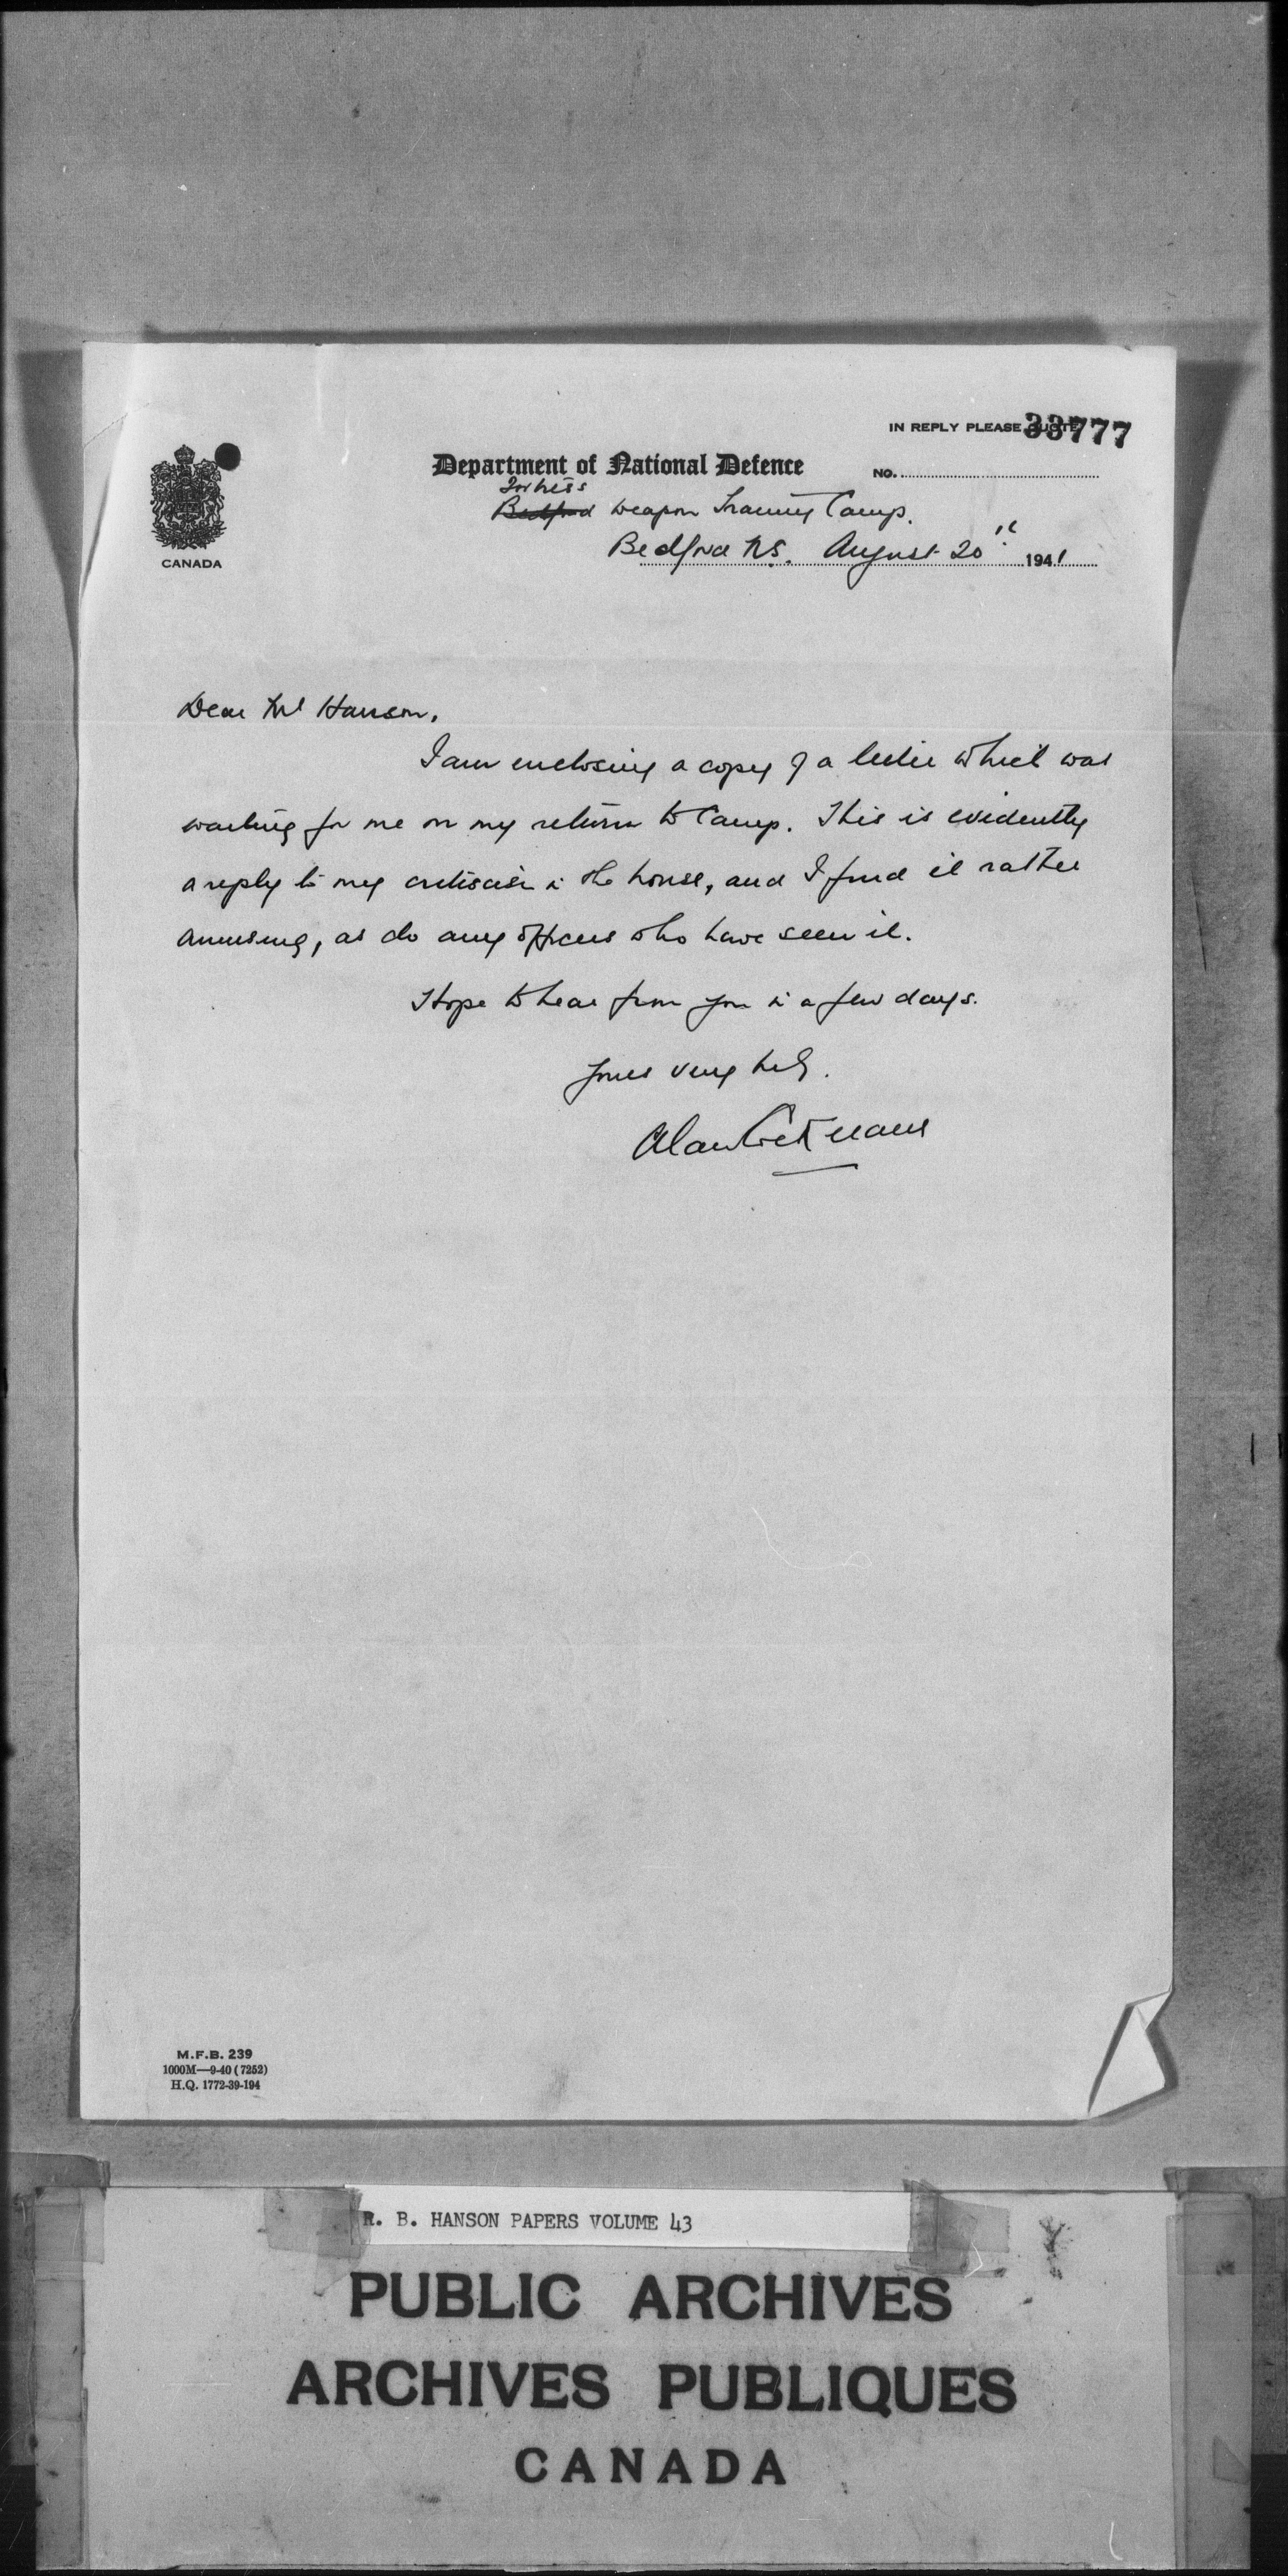 IN REPLY PLEASE QUOTE
33777
Department of National Defence
NO.
CANADA
Fortress
Bedford Weapon Training Camp.
Bedford N.S. August 20th 1941
Dear Mr Hanson,
I am enclosing a copy of a letter which was
waiting for me on my return to Camp. This is evidently
a reply to my criticism in the house, and I find it rather
amusing, as do any officers who have seen it.
Hope to hear from you in a few days.
Yours very truly.
Alan
M.F.B. 239
1000M—9-40 (7252)
H.Q. 1772-39-194
R. B. HANSON PAPERS VOLUME 43
PUBLIC ARCHIVES
ARCHIVES PUBLIQUES
CANADA